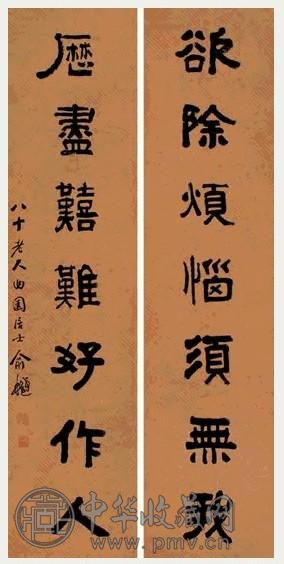 欲除煩惱須無我
歷盡囏難好作人
八十老人曲園居士俞樾
中华收藏网
www.pmv.cn